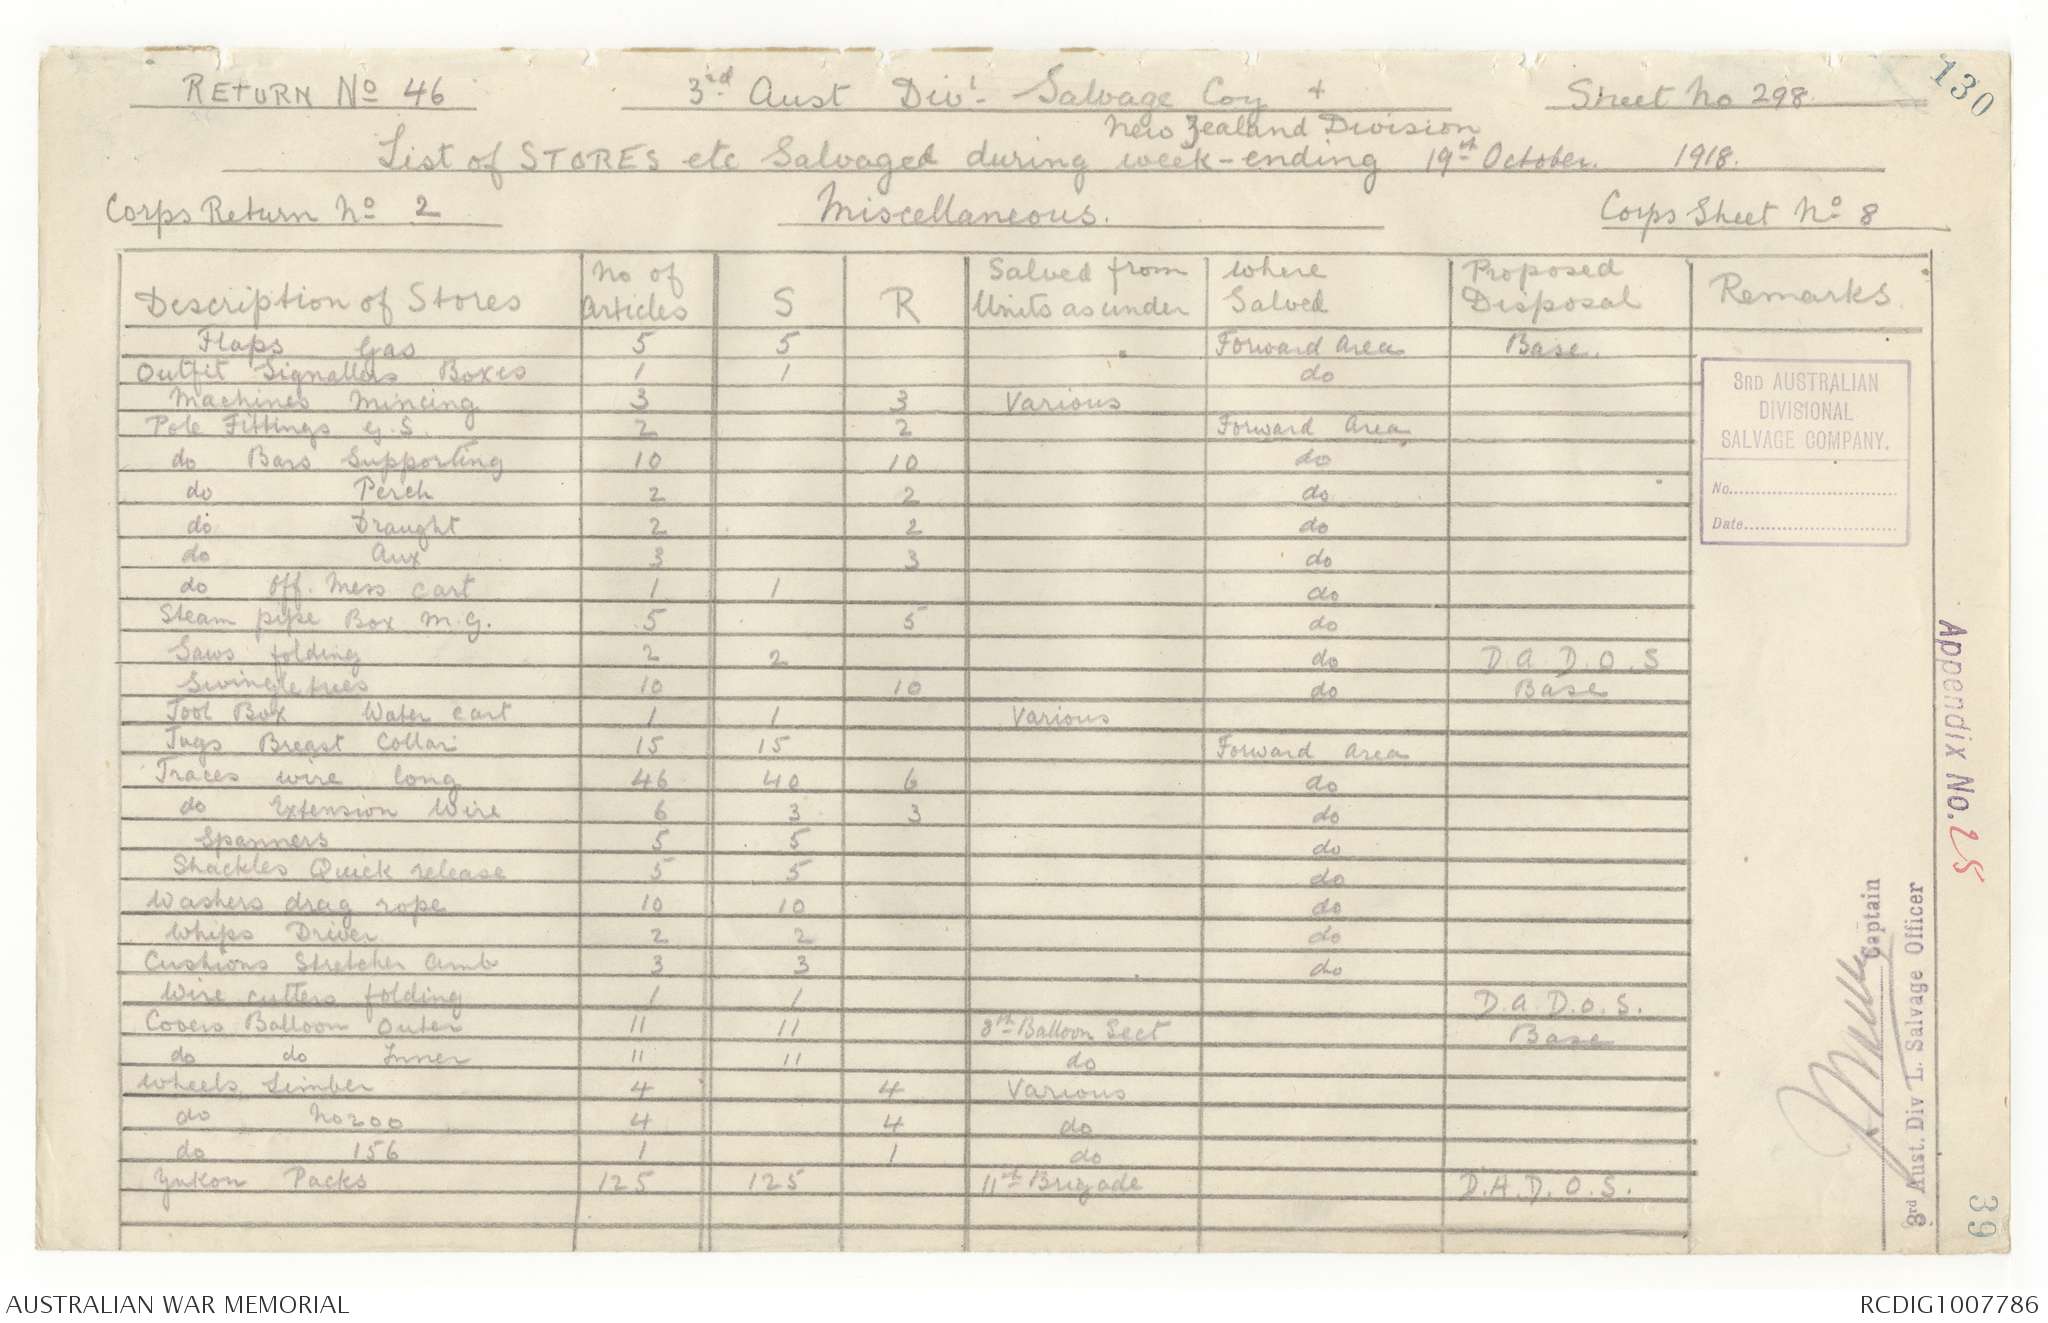 130
RETURN No 46 3rd Aust Div'l Salvage Coy + Sheet No 298
New Zealand Division
List of STORES etc Salvaged during week-ending 19th October. 1918.
Corps Return No 2 Miscellaneous. Corps Sheet No 8
Description of Stores No of Articles S R Salved from Units as under Where Salved Proposed Disposal Remarks
Flaps Gas 5 5 Forward Area Base
Outfit Signallers Boxes 1 1 do
Machines Mincing 3 3 Various
Pole Fittings G.S. 2 2 Forward Area
do Bars Supporting 10 10 do
do Perch 2 2 do
do Draught 2 2 do
do Aux 3 3 do
do Off. Mess cart 1 1 do
Steam pipe Box M.G. 5 5 do
Saws folding 2 2 do D.A.D.O.S
Swingletrees 10 10 do Base
Tool Box Water cart 1 1 Various
Tugs Breast Collar 15 15 Forward Area
Traces wire long 46 40 6 do
do Extension Wire 6 3 3 do
Spanners 5 5 do
Shackles Quick release 5 5 do
Washers drag rope 10 10 do
Whips Driver 2 2 do
Cushions Stretcher Amb 3 3 do
Wire cutters folding 1 1 D.A.D.O.S.
Covers Balloon Outer 11 11 8th Balloon Sect Base
do do Inner 11 11 do
Wheels Limber 4 4 Various
do No 200 4 4 do
do 156 1 1 do
Yukon Packs 125 125 11th Brigade D.A.D.O.S.
3RD AUSTRALIAN
DIVISIONAL
SALVAGE COMPANY.
No.
Date
Appendix No. 25
Captain
3rd Aust. Div L. Salvage Officer
39
AUSTRALIAN WAR MEMORIAL RCDIG1007786